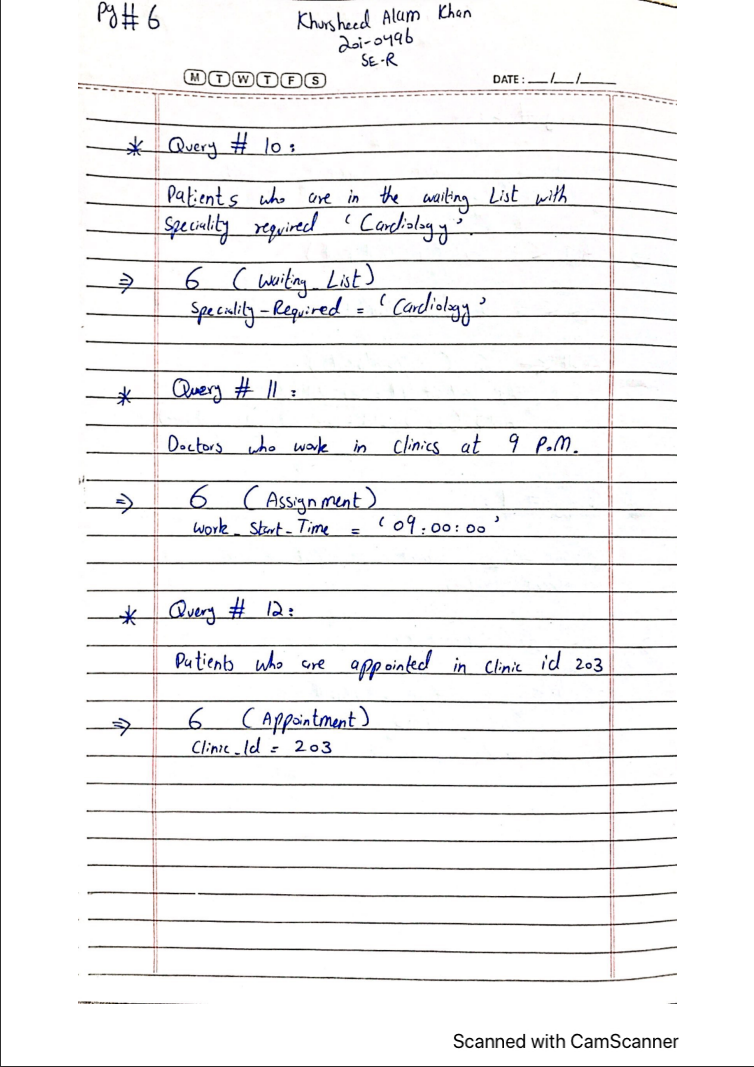 Pg# 6
Khursheed Alam Khan
20i-0496
SE-R
M T W T F S
DATE: __/__/____
* Query # 10:
Patients who are in the waiting List with
Speciality required 'Cardiology'.
⇒ 6 (Waiting_List)
Speciality-Required = 'Cardiology'
* Query # 11:
Doctors who work in Clinics at 9 P.M.
⇒ 6 (Assignment)
Work_Start-Time = '09:00:00'
* Query # 12:
Patients who are appointed in Clinic id 203
⇒ 6 (Appointment)
Clinic_Id = 203
Scanned with CamScanner